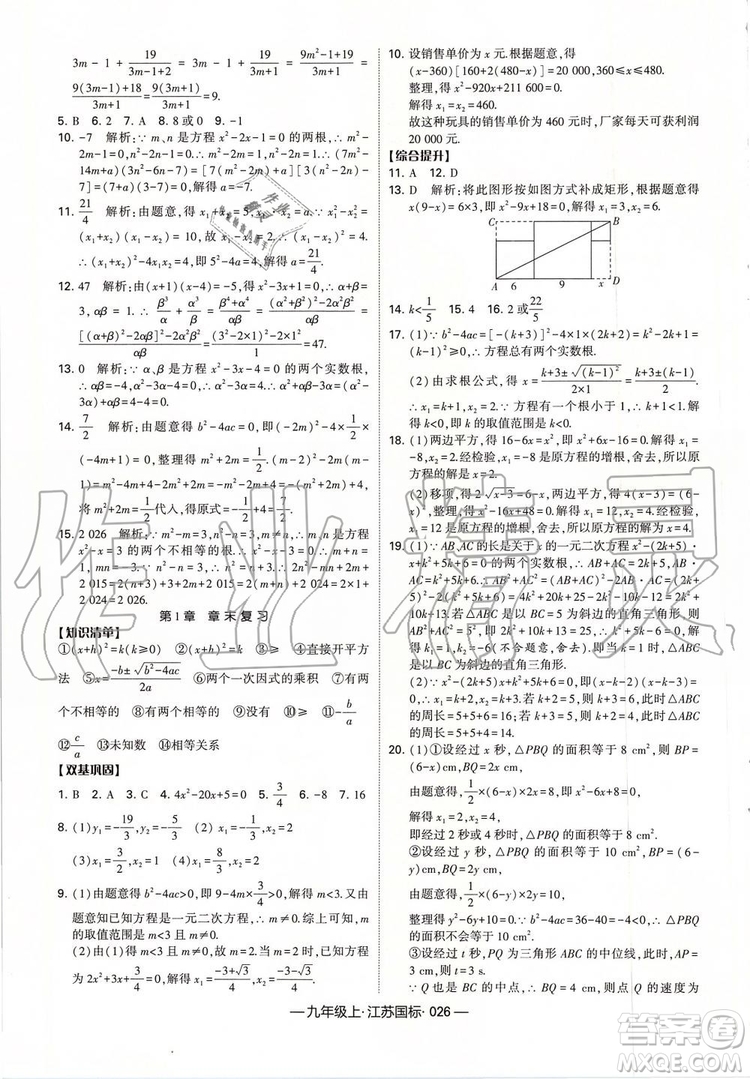 3m-1+19/(3m-1+2)=3m-1+19/(3m+1)=(9m²-1+19)/(3m+1)=
(9(3m-1)+18)/(3m+1)=9(3m+1)/(3m+1)=9.
5. B 6. 2 7. A 8. 8或0 9. -1
10. -7 解析:∵m、n是方程x²-2x-1=0的两根,∴m²-
2m-1=0,n²-2n-1=0,∴m²-2m=1,n²-2n=1,∴(7m²-
14m+a)(3n²-6n-7)=[7(m²-2m)+a][3(n²-2n)-7]=
(7+a)(3-7)=0,∴a=-7.
11. 21/4 解析:由题意,得x₁+x₂=5,x₁x₂=a,
x₁²-x₂²=
(x₁+x₂)(x₁-x₂)=10,故x₁-x₂=2,∴(x₁-x₂)²=
(x₁+x₂)²-4x₁x₂=4,即5²-4a=4,∴a=21/4.
12. 47 解析:由(x+1)(x-4)=-5,得x²-3x+1=0,∴α+β=
3,αβ=1.∴β³/α+α³/β=(α⁴+β⁴)/αβ=((α²+β²)²-2α²β²)/αβ=
([(α+β)²-2αβ]²-2(αβ)²)/αβ=((3²-2×1)²-2×1²)/1=47.
13. 0 解析:∵α、β是方程x²-3x-4=0的两个实数根,
∴αβ=-4,α²-3α-4=0,∴α²-3α=4,∴α²+αβ-
3α=αβ+4=-4+4=0.
14. 7/2 解析:由题意得b²-4ac=0,即(-2m)²-4×1/2×
(-4m+1)=0,整理得m²+2m=1/2.∴(m-2)²-2m(m-1)=-m²-2m+4,
将m²+2m=1/2代人,得原式=-1/2+4=7/2.
15. 2 026 解析:∵m²-m=3,n²-n=3,∴m,n是方程
x²-x=3的两个不相等的根,∴m+n=1,
2 015=2(n+3)-mn+2m+2 015=2(m+n)-mn+
2 021=2 026.
第1章 章末复习
【知识清单】
①(x+h)²=k(k≥0) ②(x+h)²=k ③≥0 ④直接开平方
法 ⑤x=(-b±√(b²-4ac))/2a ⑥两个一次因式的乘积 ⑦有两
个不相等的 ⑧有两个相等的 ⑨没有 ⑩≥ ⑪-b/a
⑫c/a ⑬未知数 ⑭相等关系
【双基巩固】
1. B 2. A 3. C 4. 4x²-20x+5=0 5. 3/4 6. -2 7. 16
8. (1)y₁=-19/3,y₂=-5/3 (2)x₁=-3/4,x₂=3/4
(3)x₁=3/2,x₂=1 (4)x₁=-2,x₂=1
9. (1)由题意得b²-4ac>0,即9-4m×3/4>0,∴m<3.又由
题意知已知方程是一元二次方程,∴m≠0.综上可知,m
的取值范围是m<3且m≠0.
(2)由(1)得,m<3且m≠0.∵m为正偶数,∴m=2,方程
为2x²+3x+3/4=0,解得x₁=(-3+√3)/4,x₂=(-3-√3)/4.
10. 设销售单价为x元.根据题意,得
(x-360)[160+2(480-x)]=20 000,∴360≤x≤480.
整理,得x²-920x+211 600=0.
解得x₁=x₂=460.
故这种玩具的销售单价为460元时,厂家每天可获利润
20 000元.
【综合提升】
11. A 12. D
13. D 解析:将此图形按如图方式补成矩形,根据题意得
x(9-x)=6×3,即x²-9x+18=0.解得x=3或x=6.
C B
A 6 9 x D
14. k<1/5 15. 4 16. 2或22/5
17. (1)∵b²-4ac=[-(k+3)]²-4×1×(2k+2)=k²-2k+1=
(k-1)²≥0,∴方程总有两个实数根.
(2)由求根公式,得x=(k+3±√(k-1)²)/(2×1)=(k+3±(k-1))/2,
∴x₁=k+1,x₂=2.∵方程有一个根小于1,∴k+1<1.解
得k<0,即k的取值范围是k<0.
18. (1)两边平方,得16-6x=x².∴x²+6x-16=0.解得x₁=
-8,x₂=2.经检验,x₁=-8是原方程的增根,舍去,∴原
方程的解为x=2.
(2)移项,得2√(x-3)=x-6,两边平方,得4(x-3)=(6-
x)².整理,得x²-16x+48=0.解得x₁=12,x₂=4.经检
验,x₁=12是原方程的增根,舍去,∴原方程的解为x=4.
19. (1)∵AB、AC的长是关于x的一元二次方程x²-(2k+5)·
x+k²+5k+6=0的两个实数根,∴AB+AC=2k+5,AB·AC
=k²+5k+6.
∵△ABC是以BC=5为斜边的直角三角形,
解得k₁=1,k₂=-6(不合题意,舍去).∴当k=1时,△ABC
是以BC为斜边的直角三角形.
(2)∵x²-(2k+5)x+k²+5k+6=0,∴x₁=k+2,x₂=k+
3.当AB=BC=5或AC=BC=5时,△ABC是等腰三角
形.若k+2=5,则k=3,k+3=6,∴k=3,此时△ABC
的周长=5+5+6=16;若k+3=5,则k=2,此时△ABC
的周长=5+5+4=14.
20. (1)①设经过x秒,△PBQ的面积等于8 cm²,则BP=
(6-x)cm,BQ=2x cm,
由题意,得1/2×(6-x)×2x=8.∴x²-6x+8=0.
解得x₁=2,x₂=4.
即经过2秒或4秒,△PBQ的面积等于8 cm².
②设经过y秒,△PBQ的面积等于10 cm²,则BP=(6-
y)cm,BQ=2y cm,
由题意,得1/2×(6-y)×2y=10.
整理得y²-6y+10=0.∵b²-4ac=36-40=-4<0,
∴△PBQ的面积不会等于10 cm².
(2)设时间为t s,PQ为三角形ABC的中位线,此时
BP=3 cm,∴t=3 s.
∵Q也是BC的中点,∴BQ=4 cm,∴点Q的速度为
九年级上·江苏国标·026
作业精灵
答案圈
MXQE.COM